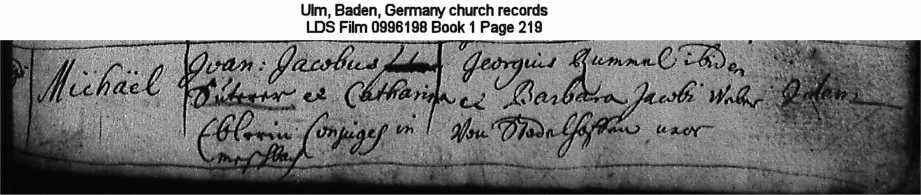 Ulm, Baden, Germany church records
LDS Film 0996198 Book 1 Page 219
Michäel
Joan: Jacobus
Süterer et Catharina
Eblerin Conjuges in
Georgius Rummel ibidem
et Barbara Jacobi Weber
Von Stadelhoffen uxor